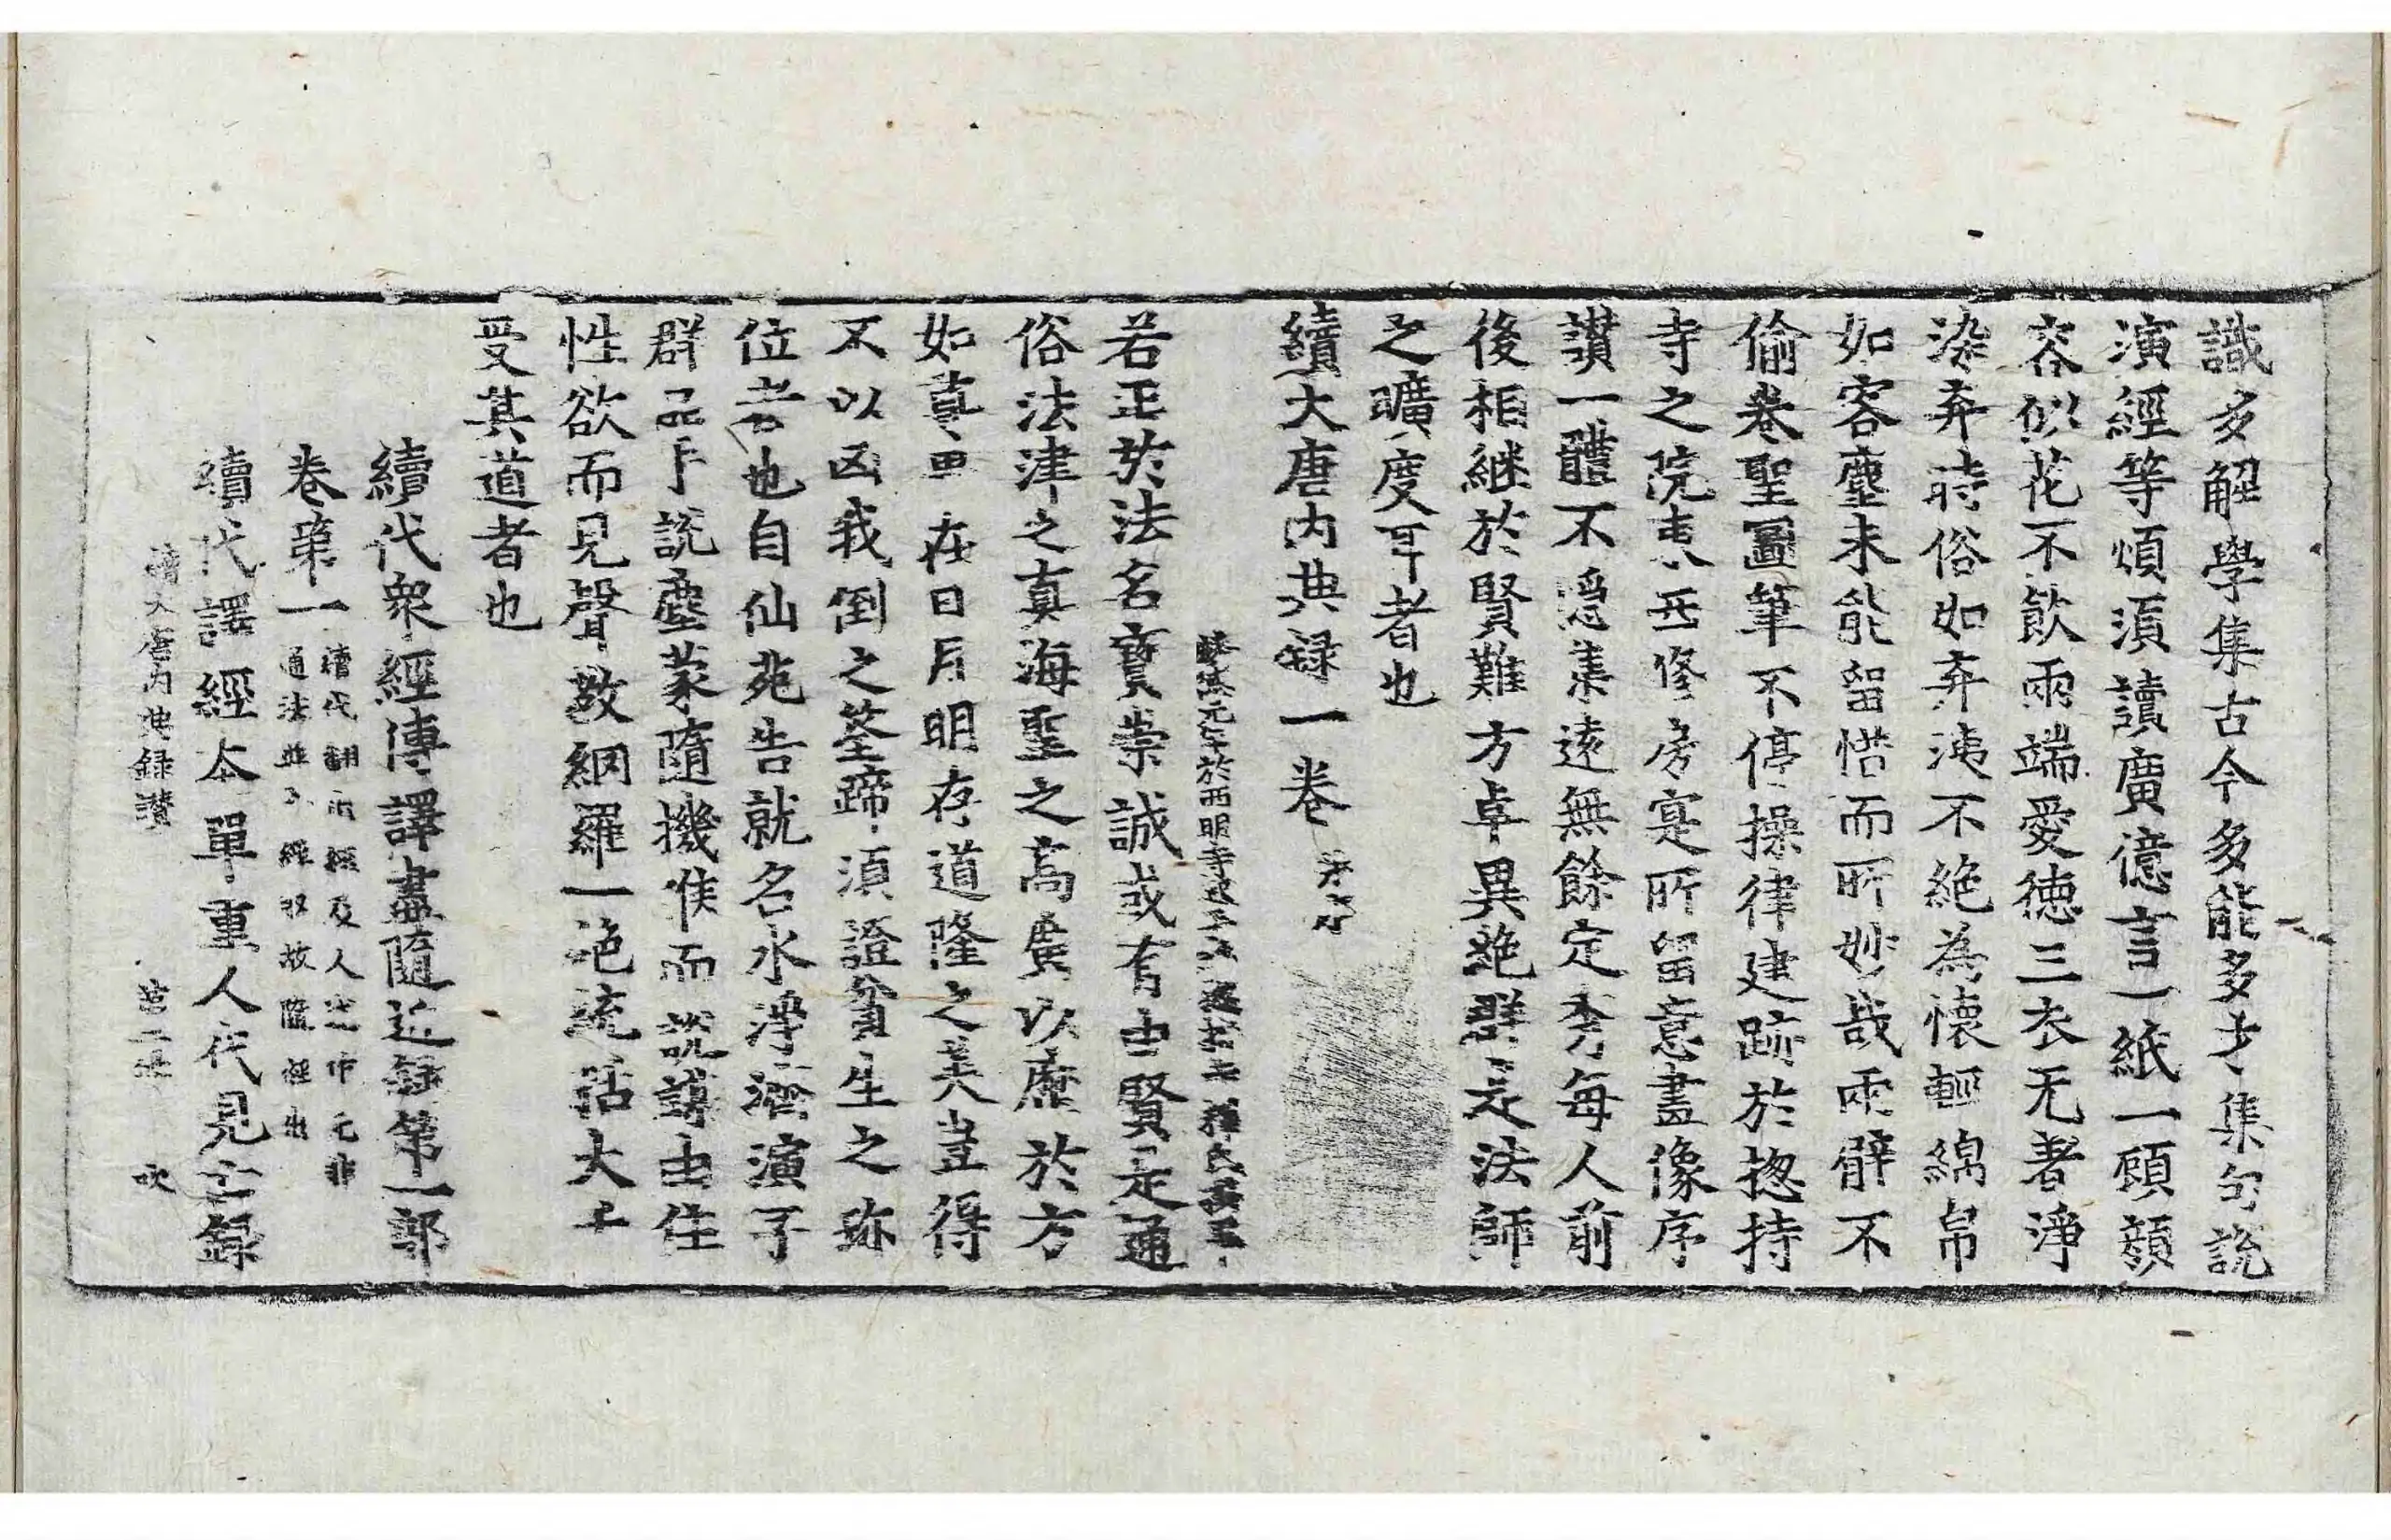 識多解學集古今多能多才集句說
演經等煩湏讀廣億言一紙一頋頟
容似花不飲兩端愛德三衣无著淨
染弃時俗如弃洟不絶為懷輕綿帛
如客塵未能留惜而所妙哉兩臂不
偷卷聖圖筆不停操律建跡於揔持
寺之院表西修房寔所留意盡像序
讃一體不隱集遠無餘定秀每人前
後相継於賢難方卓異絶群是法師
之曠度耳者也
續大唐内典録一卷
麟德元年於西明寺 釋氏
若正於法名寳崇誠或有由賢是通
俗法津之真海聖之高廣以歷於方
如真 在日月明存道隆之美豈得
不以凶我倒之筌蹄湏證貧生之跡
位者也自仙苑告就名水淨濟演子
群品 說塵蒙隨機候而說導由住
性欲而見聲教綱羅一絶統括大千
受其道者也
續代衆經傳譯盡隨近録第一部
卷第一 續代翻 經及人 非 通法 經 故隨 出
續代譯經本單重人代見亡録
續大唐内典録讃 第二 吹